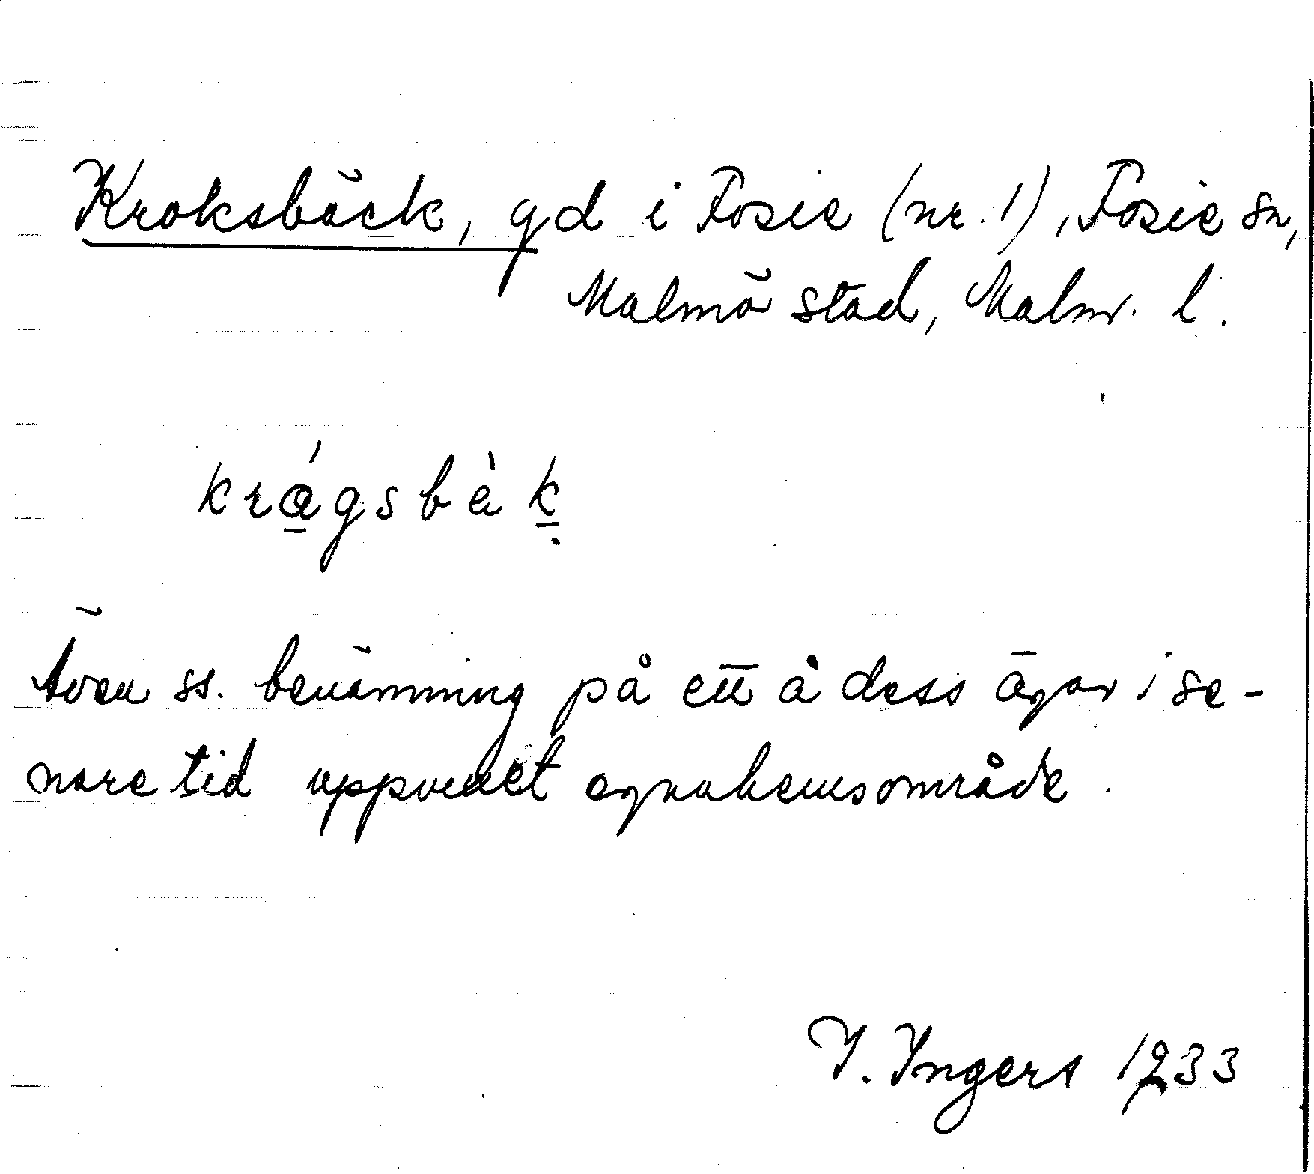 Kroksbäck, gd i Fosie (nr. 1), Fosie sn,
Malmö stad, Malm. l.
krágsbàk
Även ss. benämning på ett å dess ägor i se-
nare tid uppvuxet egnahemsområde.
I. Ingers 1933